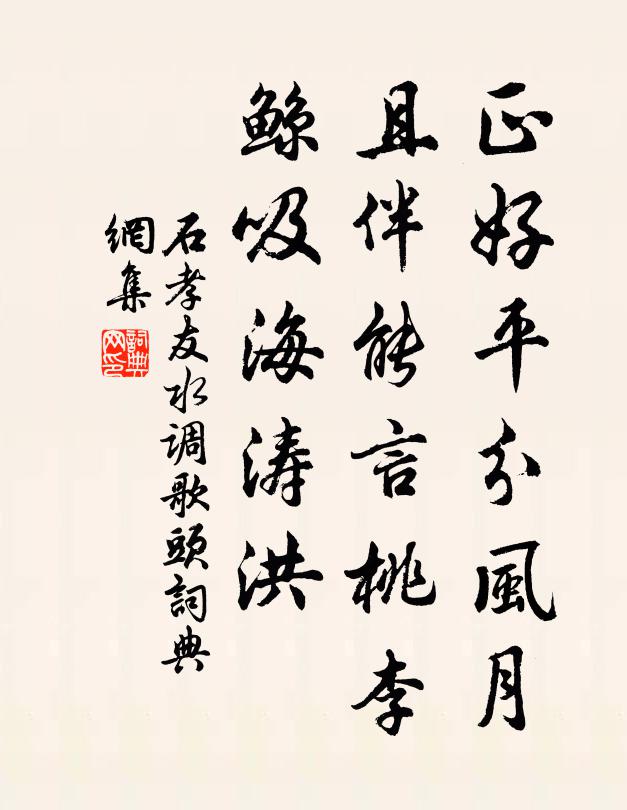 正好平分風月
且伴能言桃李
鯨吸海濤洪
石孝友水调歌頭詞典
網集
詞典
网印